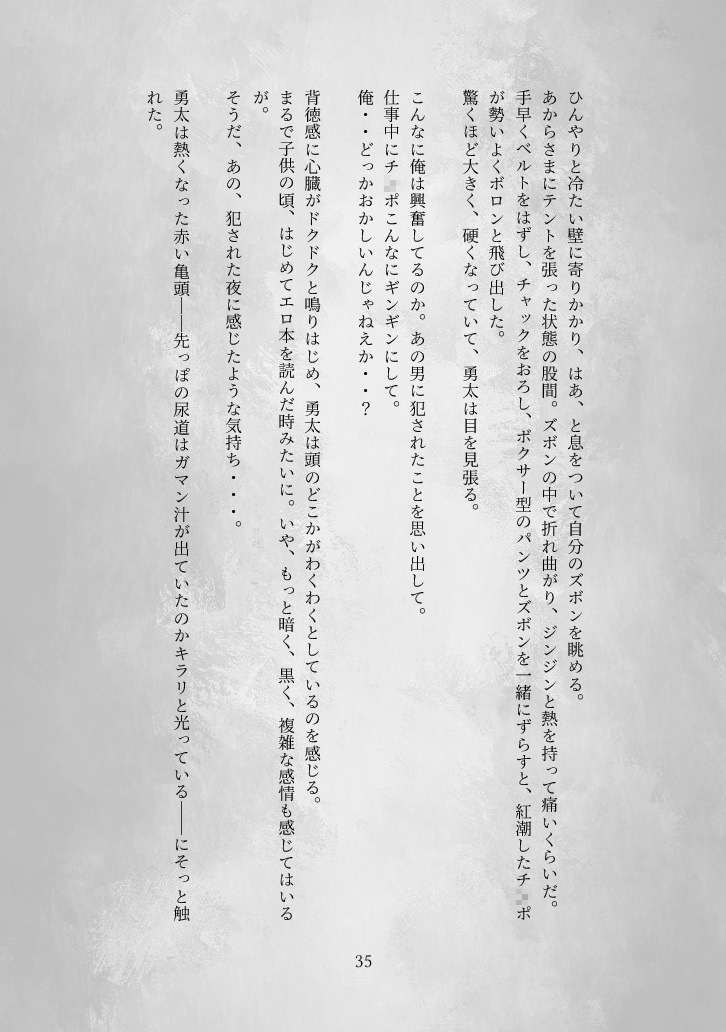 ひんやりと冷たい壁に寄りかかり、はあ、と息をついて自分のズボンを眺める。
あからさまにテントを張った状態の股間。ズボンの中で折れ曲がり、ジンジンと熱を持って痛いくらいだ。
手早くベルトをはずし、チャックをおろし、ボクサー型のパンツとズボンを一緒にずらすと、紅潮したチ ポ
が勢いよくボロンと飛び出した。
驚くほど大きく、硬くなっていて、勇太は目を見張る。
こんなに俺は興奮してるのか。あの男に犯されたことを思い出して。
仕事中にチ ポこんなにギンギンにして。
俺・・どっかおかしいんじゃねえか・・?
背徳感に心臓がドクドクと鳴りはじめ、勇太は頭のどこかがわくわくとしているのを感じる。
まるで子供の頃、はじめてエロ本を読んだ時みたいに。いや、もっと暗く、黒く、複雑な感情も感じてはいる
が。
そうだ、あの、犯された夜に感じたような気持ち・・・。
勇太は熱くなった赤い亀頭――先っぽの尿道はガマン汁が出ていたのかキラリと光っている――にそっと触
れた。
35